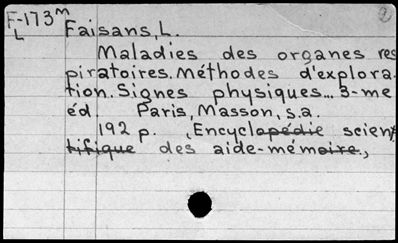 F-173m
L
Faisans, L.
Maladies des organes res
piratoires. Méthodes d'explora-
tion. Signes physiques... 3-me
éd Paris, Masson, s.a.
192 p. (Encyclopédie scien-
tifique des aide-mémoire,,
2